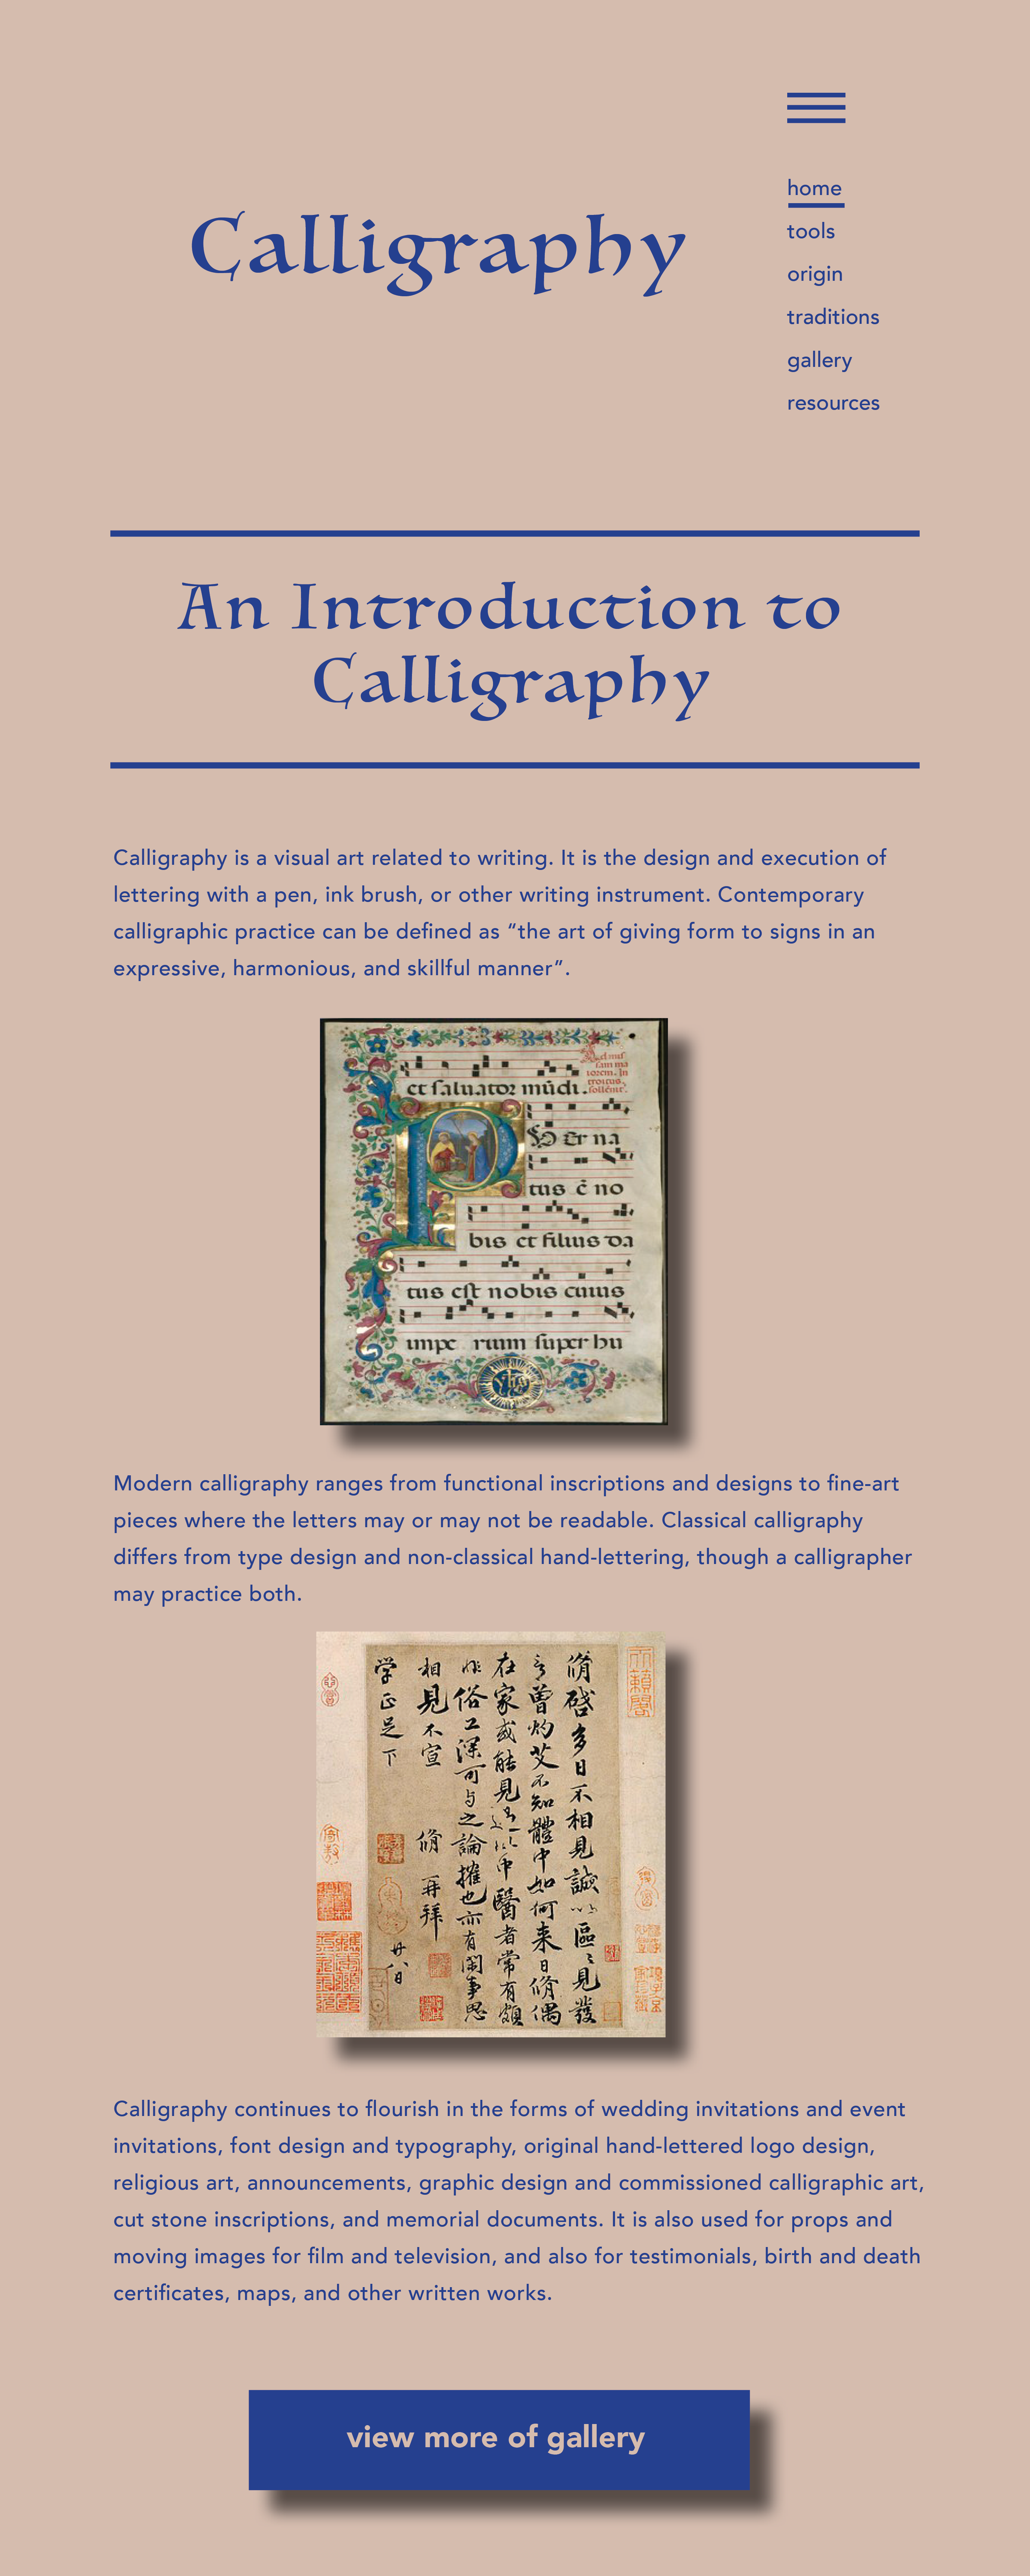 Calligraphy
home
tools
origin
traditions
gallery
resources
An Introduction to
Calligraphy
Calligraphy is a visual art related to writing. It is the design and execution of
lettering with a pen, ink brush, or other writing instrument. Contemporary
calligraphic practice can be defined as “the art of giving form to signs in an
expressive, harmonious, and skillful manner”.
et saluator mũdi.
Ad mis
sam ma
iorem. In
troitus.
P Er na
tus ē no
bis et filius da
tus est nobis cuius
impe rium super hu
Modern calligraphy ranges from functional inscriptions and designs to fine-art
pieces where the letters may or may not be readable. Classical calligraphy
differs from type design and non-classical hand-lettering, though a calligrapher
may practice both.
脩啓多日不相見誠以區〻見發
言曾灼艾不知體中如何来日脩偶
在家或能見過此中醫者常有頗
非俗工深可与之論搉也亦有閑事思
相見不宣 脩再拜
廿八日
学正足下
Calligraphy continues to flourish in the forms of wedding invitations and event
invitations, font design and typography, original hand-lettered logo design,
religious art, announcements, graphic design and commissioned calligraphic art,
cut stone inscriptions, and memorial documents. It is also used for props and
moving images for film and television, and also for testimonials, birth and death
certificates, maps, and other written works.
view more of gallery